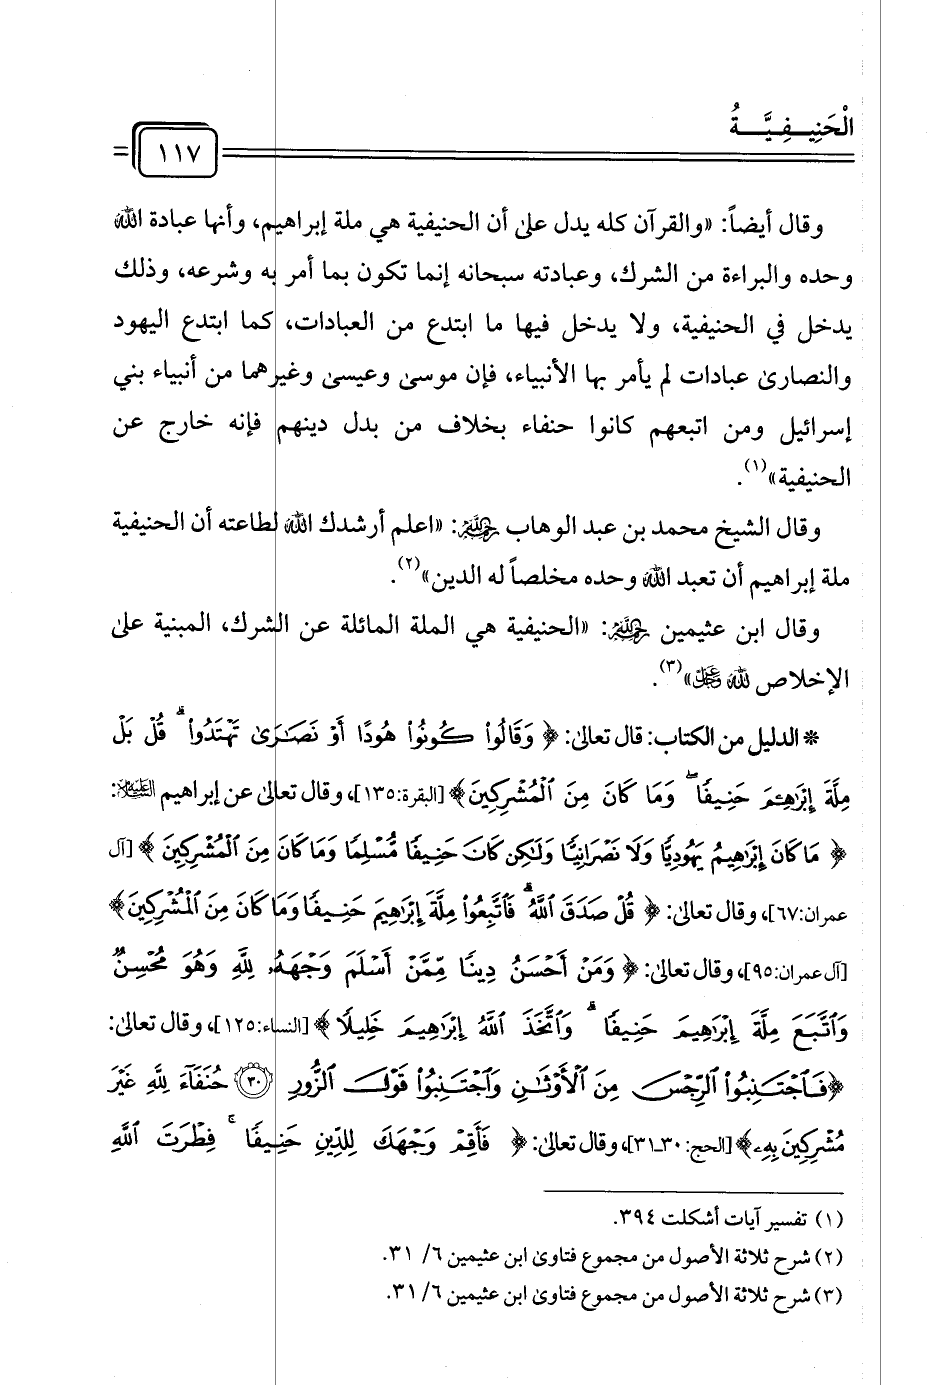 الْحَنِيــفِــيَّــــةُ
١١٧
وقال أيضاً: «والقرآن كله يدل على أن الحنيفية هي ملة إبراهيم، وأنها عبادة الله
وحده والبراءة من الشرك، وعبادته سبحانه إنما تكون بما أمر به وشرعه، وذلك
يدخل في الحنيفية، ولا يدخل فيها ما ابتدع من العبادات، كما ابتدع اليهود
والنصارى عبادات لم يأمر بها الأنبياء، فإن موسى وعيسى وغيرهما من أنبياء بني
إسرائيل ومن اتبعهم كانوا حنفاء بخلاف من بدل دينهم فإنه خارج عن
الحنيفية»(١).
وقال الشيخ محمد بن عبد الوهاب رحمه الله: «اعلم أرشدك الله لطاعته أن الحنيفية
ملة إبراهيم أن تعبد الله وحده مخلصاً له الدين»(٢).
وقال ابن عثيمين رحمه الله: «الحنيفية هي الملة المائلة عن الشرك، المبنية على
الإخلاص لله عز وجل»(٣).
* الدليل من الكتاب: قال تعالى: ﴿ وَقَالُوا۟ كُونُوا۟ هُودًا أَوْ نَصَـٰرَىٰ تَهْتَدُوا۟ ۗ قُلْ بَلْ
مِلَّةَ إِبْرَٰهِـۧمَ حَنِيفًا ۖ وَمَا كَانَ مِنَ ٱلْمُشْرِكِينَ﴾ [البقرة:١٣٥]، وقال تعالى عن إبراهيم عليه السلام:
﴿ مَا كَانَ إِبْرَٰهِيمُ يَهُودِيًّا وَلَا نَصْرَانِيًّا وَلَـٰكِن كَانَ حَنِيفًا مُّسْلِمًا وَمَا كَانَ مِنَ ٱلْمُشْرِكِينَ ﴾ [آل
عمران:٦٧]، وقال تعالى: ﴿ قُلْ صَدَقَ ٱللَّهُ ۗ فَٱتَّبِعُوا۟ مِلَّةَ إِبْرَٰهِيمَ حَنِيفًا وَمَا كَانَ مِنَ ٱلْمُشْرِكِينَ﴾
[آل عمران:٩٥]، وقال تعالى: ﴿ وَمَنْ أَحْسَنُ دِينًا مِّمَّنْ أَسْلَمَ وَجْهَهُۥ لِلَّهِ وَهُوَ مُحْسِنٌ
وَٱتَّبَعَ مِلَّةَ إِبْرَٰهِيمَ حَنِيفًا ۗ وَٱتَّخَذَ ٱللَّهُ إِبْرَٰهِيمَ خَلِيلًا﴾ [النساء:١٢٥]، وقال تعالى:
﴿فَٱجْتَنِبُوا۟ ٱلرِّجْسَ مِنَ ٱلْأَوْثَـٰنِ وَٱجْتَنِبُوا۟ قَوْلَ ٱلزُّورِ ٣٠ حُنَفَآءَ لِلَّهِ غَيْرَ
مُشْرِكِينَ بِهِۦ﴾ [الحج: ٣٠ـ٣١]، وقال تعالى: ﴿ فَأَقِمْ وَجْهَكَ لِلدِّينِ حَنِيفًا ۚ فِطْرَتَ ٱللَّهِ
(١) تفسير آيات أشكلت ٣٩٤.
(٢) شرح ثلاثة الأصول من مجموع فتاوى ابن عثيمين ٦/ ٣١.
(٣) شرح ثلاثة الأصول من مجموع فتاوى ابن عثيمين ٦/ ٣١.